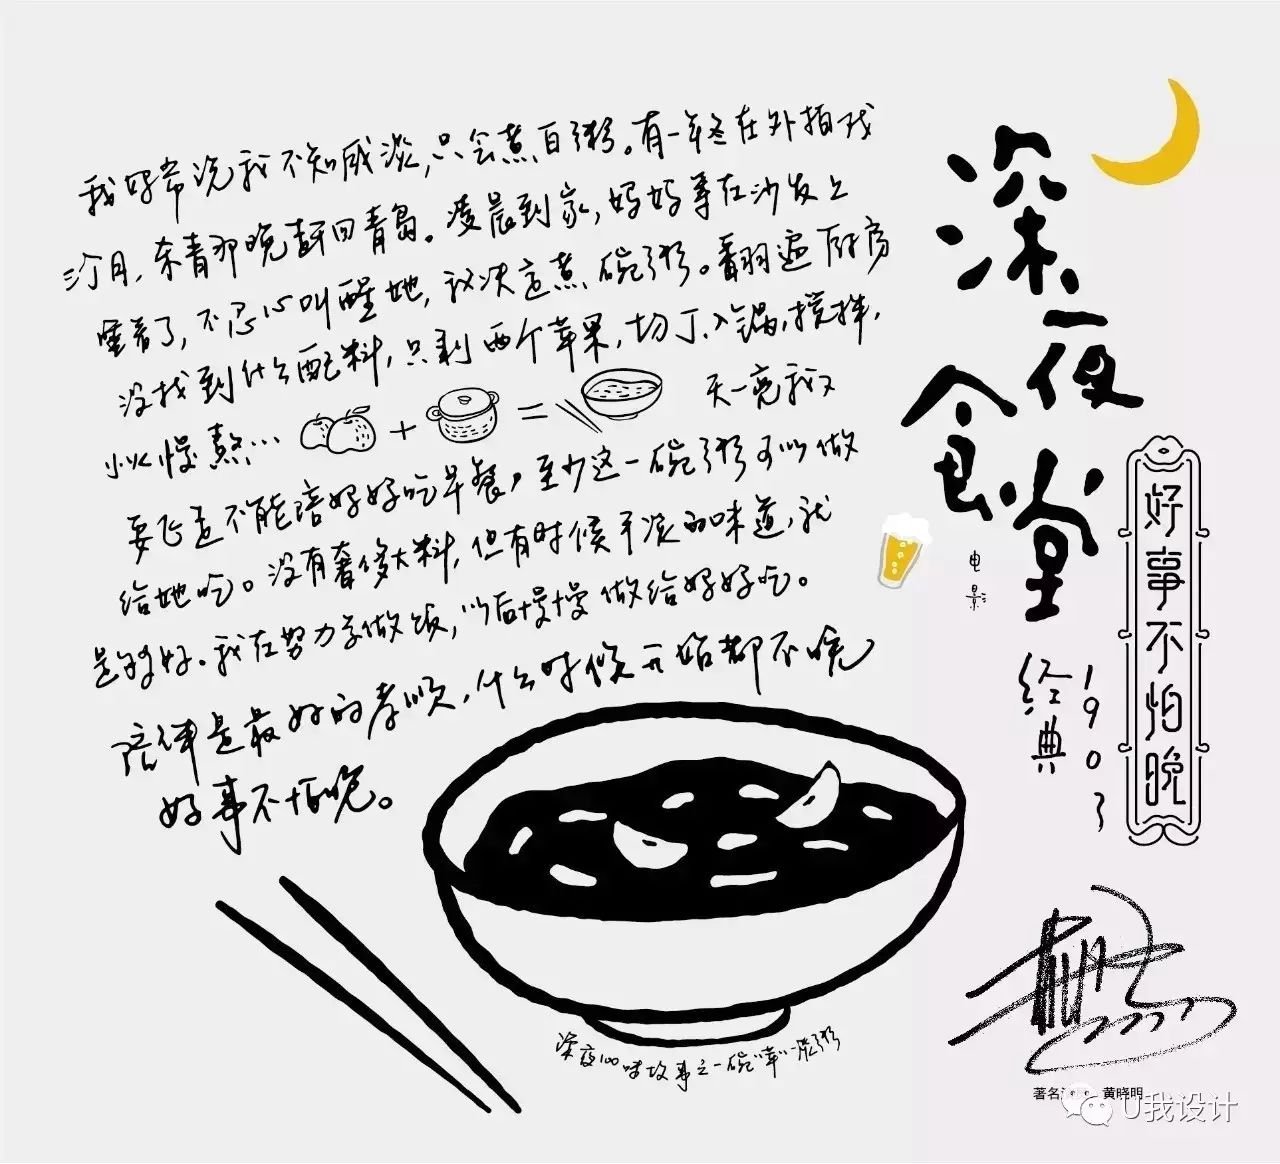 我妈常说我不知咸淡,只会煮白粥。有一年冬在外拍戏
三个月,杀青那晚赶回青岛。凌晨到家,妈妈等在沙发上
睡着了,不忍心叫醒她,我决定煮碗粥。翻遍厨房
没找到什么配料,只剩两个苹果,切丁、入锅,搅拌,
小火慢熬… 天一亮我又
要飞走不能陪妈妈吃早餐,至少这一碗粥可以做
给她吃。没有奢侈大料,但有时候平淡的味道,就
是刚好。我在努力学做饭,以后慢慢做给妈妈吃。
陪伴是最好的孝顺,什么时候开始都不晚
好事不怕晚。
深夜100味故事之一碗"苹"淡粥
深夜
食堂
电影
经典1903
好事不怕晚
著名 黄晓明
U我设计